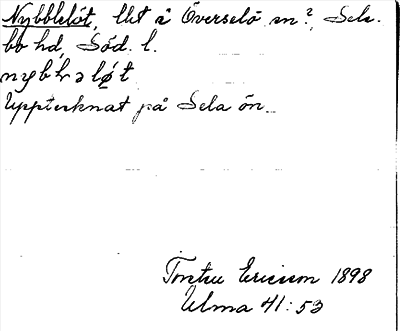 Nybbleløt, llt å Överselö sn?, Sela-
bo hd, Söd. l.
nybbləløt
Upptecknat på Sela ön.
Torsten Ericson 1898
Ulma 41:53